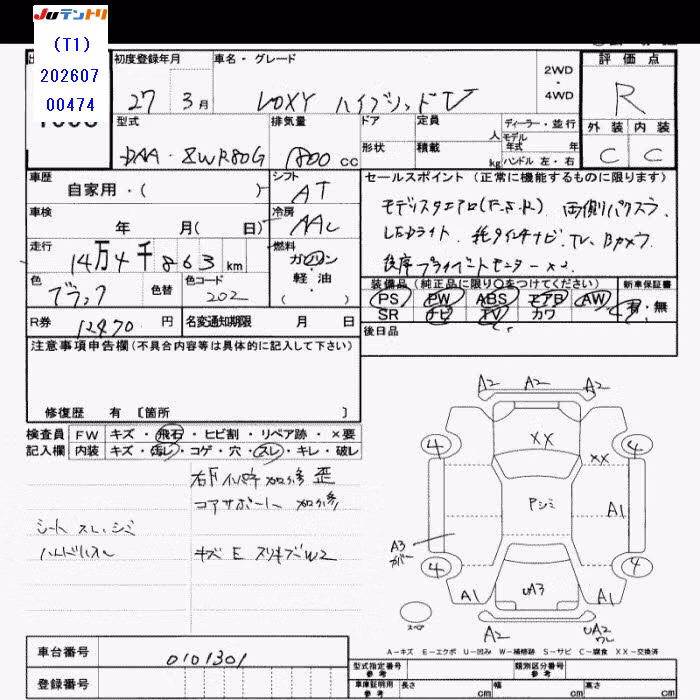 JUテントリ
(T1)
202607
00474
初度登録年月 車名・グレード 評価点
27年 3月 VOXY ハイブリッドV 2WD・4WD R
型式 排気量 ドア 定員 人 ディーラー・並行 外装 内装
DAA-ZWR80G 1800 cc 形状 積載 kg モデル年式 年 ハンドル 左・右 C C
車歴 シフト セールスポイント(正常に機能するものに限ります)
自家用・( ) AT
車検 冷房 モデリスタエアロ(F.S.R) 両側パワスラ
年 月( 日) AAC
走行 燃料 LEDライト 純9インチナビ TV Bカメラ
14万4千863km ガソリン
後席プライベートモニター×2
色 色替 色コード 軽油
ブラック 202 ( )
装備品(純正品に限り○をつけてください) 新車保証書
PS PW ABS エアB AW 有・無
SR ナビ TV カワ
R券 12470円 名変通知期限 月 日
後日品
注意事項申告欄(不具合内容等は具体的に記入して下さい)
修復歴 有 [箇所 ]
検査員 FW キズ・飛石・ヒビ割・リペア跡・×要
記入欄 内装 キズ・汚レ・コゲ・穴・スレ・キレ・破レ
右Fインパネ加修 歪
コアサポート 加修
シート スレ、シミ
ハンドルスレ キズ E スリキズW2
A2 A2 A2
4 XX 4
XX
Pシミ
A1
A3
カバー
4 4
A1 UA3 A1
スペア
A2 UA2
ワレ
A-キズ E-エクボ U-凹み W-補修跡 S-サビ C-腐食 XX-交換済
車台番号 0101301
型式指定番号 参考 類別区分番号 参考
登録番号
車庫証明用 参考 長さ cm 幅 cm 高さ cm